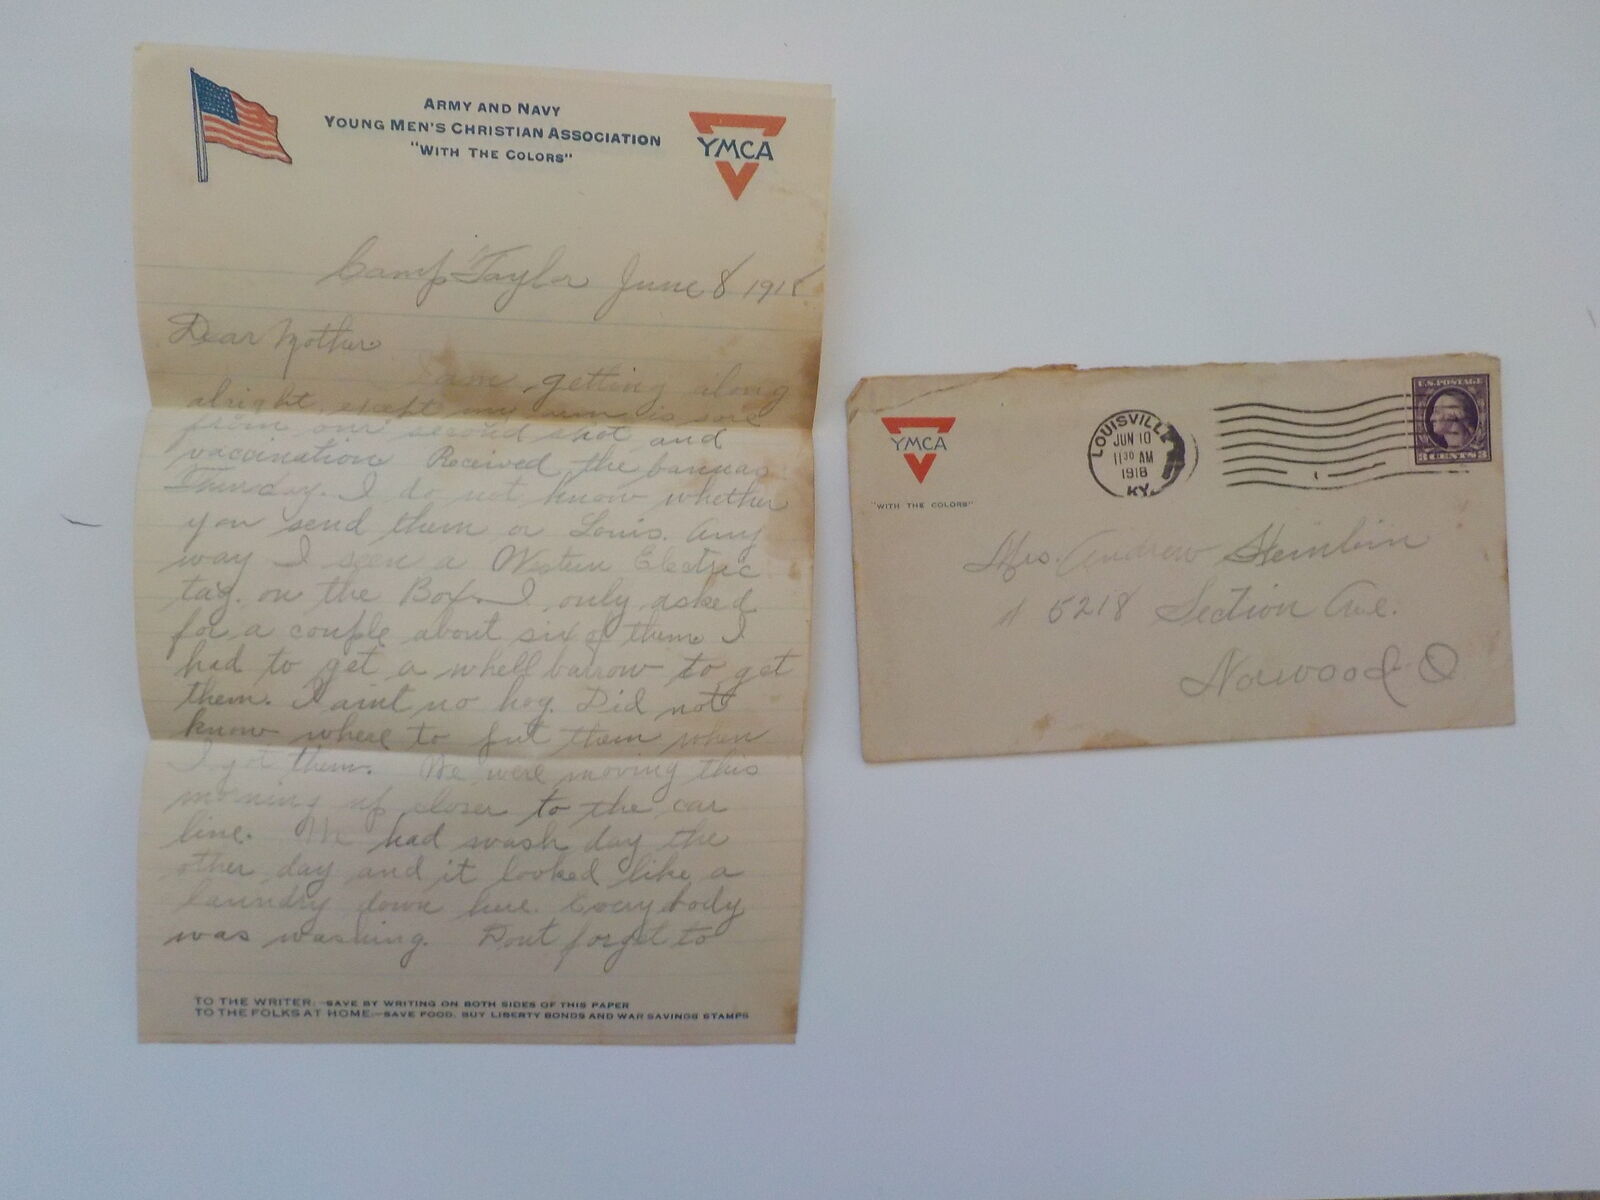 ARMY AND NAVY
YOUNG MEN'S CHRISTIAN ASSOCIATION
"WITH THE COLORS"
YMCA
Camp Taylor June 8 1918
Dear Mother
am getting along
alright except my arm is sore
from our second shot and
vaccination Received the bananas
Thursday. I do not know whether
you send them or Louis. Any
way I seen a Western Electric
tag. on the Box. I only asked
for a couple about six of them I
had to get a whell barrow to get
them. I aint no hog. Did not
know where to put them when
I got them. We were moving this
morning up closer to the car
line. We had wash day the
other day and it looked like a
laundry down here. Every body
was washing. Dont forget to
TO THE WRITER:—SAVE BY WRITING ON BOTH SIDES OF THIS PAPER
TO THE FOLKS AT HOME:—SAVE FOOD, BUY LIBERTY BONDS AND WAR SAVINGS STAMPS
YMCA
"WITH THE COLORS"
LOUISVILLE
JUN 10
11 30 AM
1918
KY.
U.S. POSTAGE
3 CENTS 3
Mrs. Andrew
# 5218 Section Ave.
Norwood O